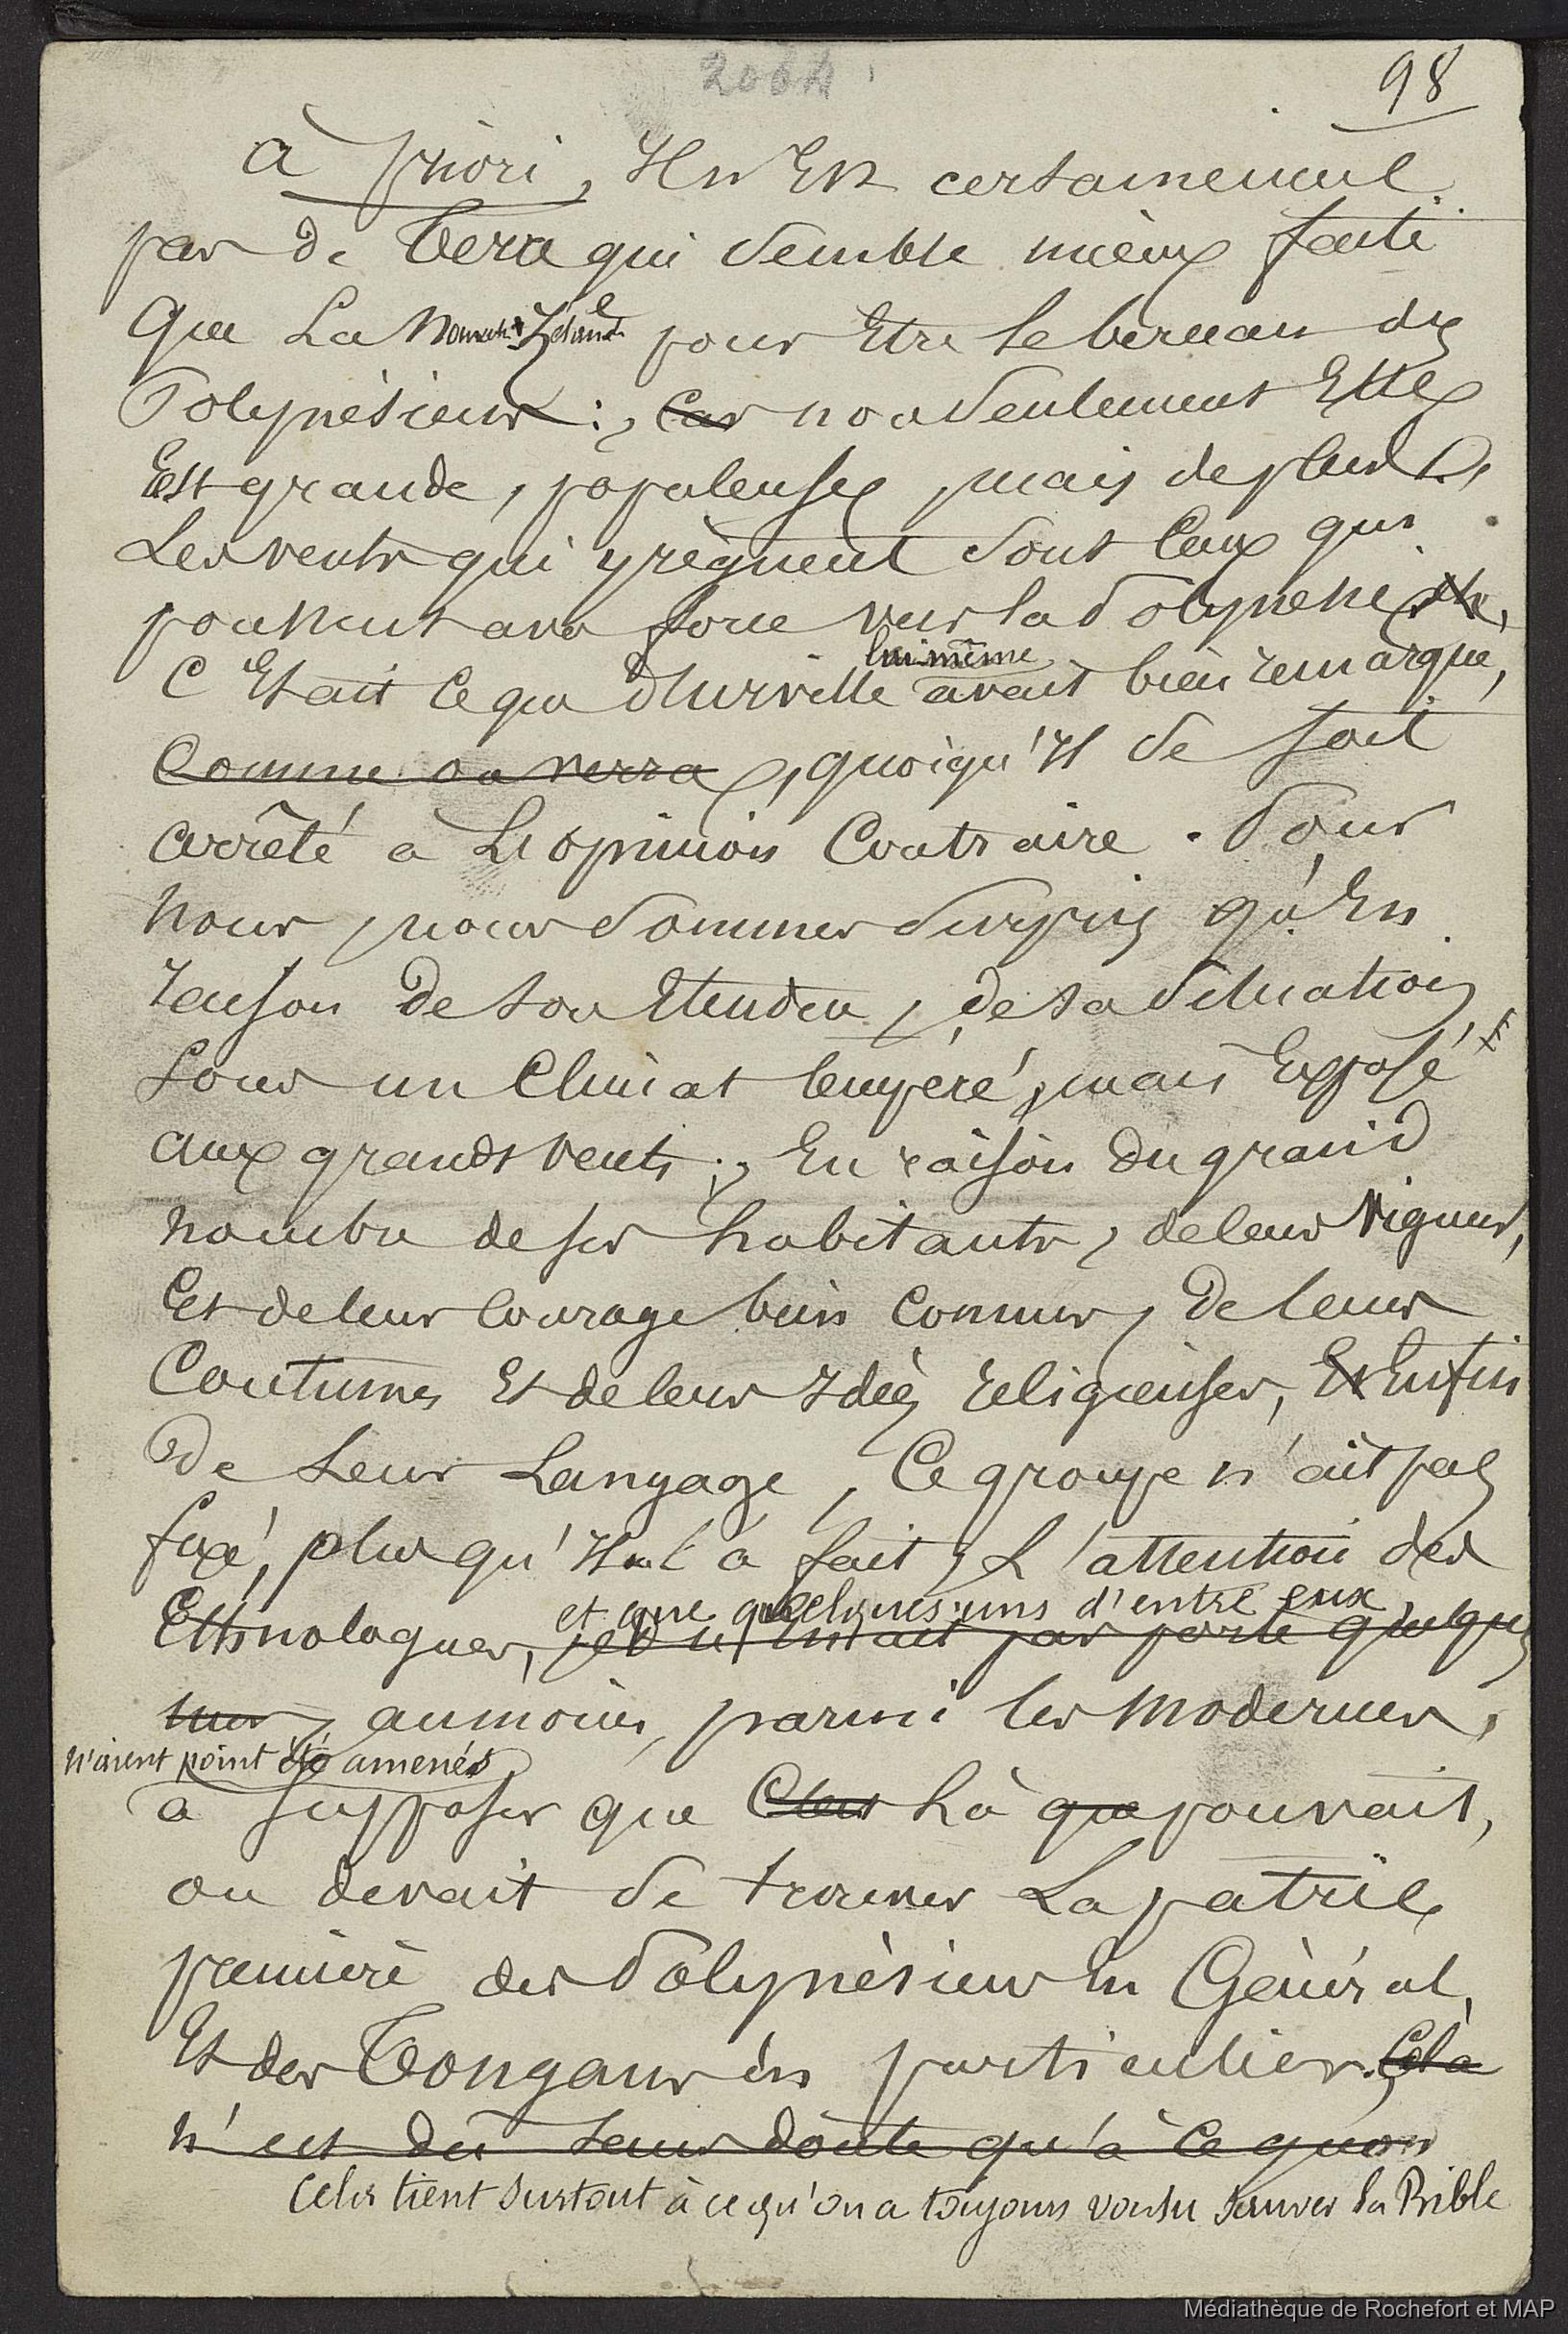 2064
98
à priori, Il n'Est certainement
pas de terre qui semble mieux faite
que La Nouvelle Zélande pour Etre le berceau des
Polynésiens : Car non seulement Elle
Est grande, populeuse, mais de plus
Les vents qui y règnent sont Ceux qui
poussent avec force vers la Polynésie
C'Etait ce que d'Urville lui même avait bien remarqué,
Comme on verra, quoiqu'Il se soit
arrêté à L'opinion Contraire. Pour
nous, nous sommes surpris qu'En
raison de son Etendue, de sa situation,
sous un Climat tempéré, mais Exposé
aux grands vents ; En raison du grand
nombre de ses habitants, de leur vigueur,
Et de leur Courage bien connus, de leurs
Coutumes Et de leurs Idées religieuses, Et Enfin
de Leur Langage, Ce groupe n'ait pas
fixé, plus qu'Il n'a fait, L'attention des
Ethnologues,
et que quelques-uns d'entre eux
ait pas porté quelques
uns, au moins, parmi les modernes,
n'aient point été amenés
à supposer que là que pouvait,
ou devait se trouver La patrie
première des Polynésiens En Général,
Et des Tongans En particulier. Cela
n'est dû sans doute qu'à ce qu'on
Cela tient surtout à ce qu'on a toujours voulu sauver la Bible
Médiathèque de Rochefort et MAP